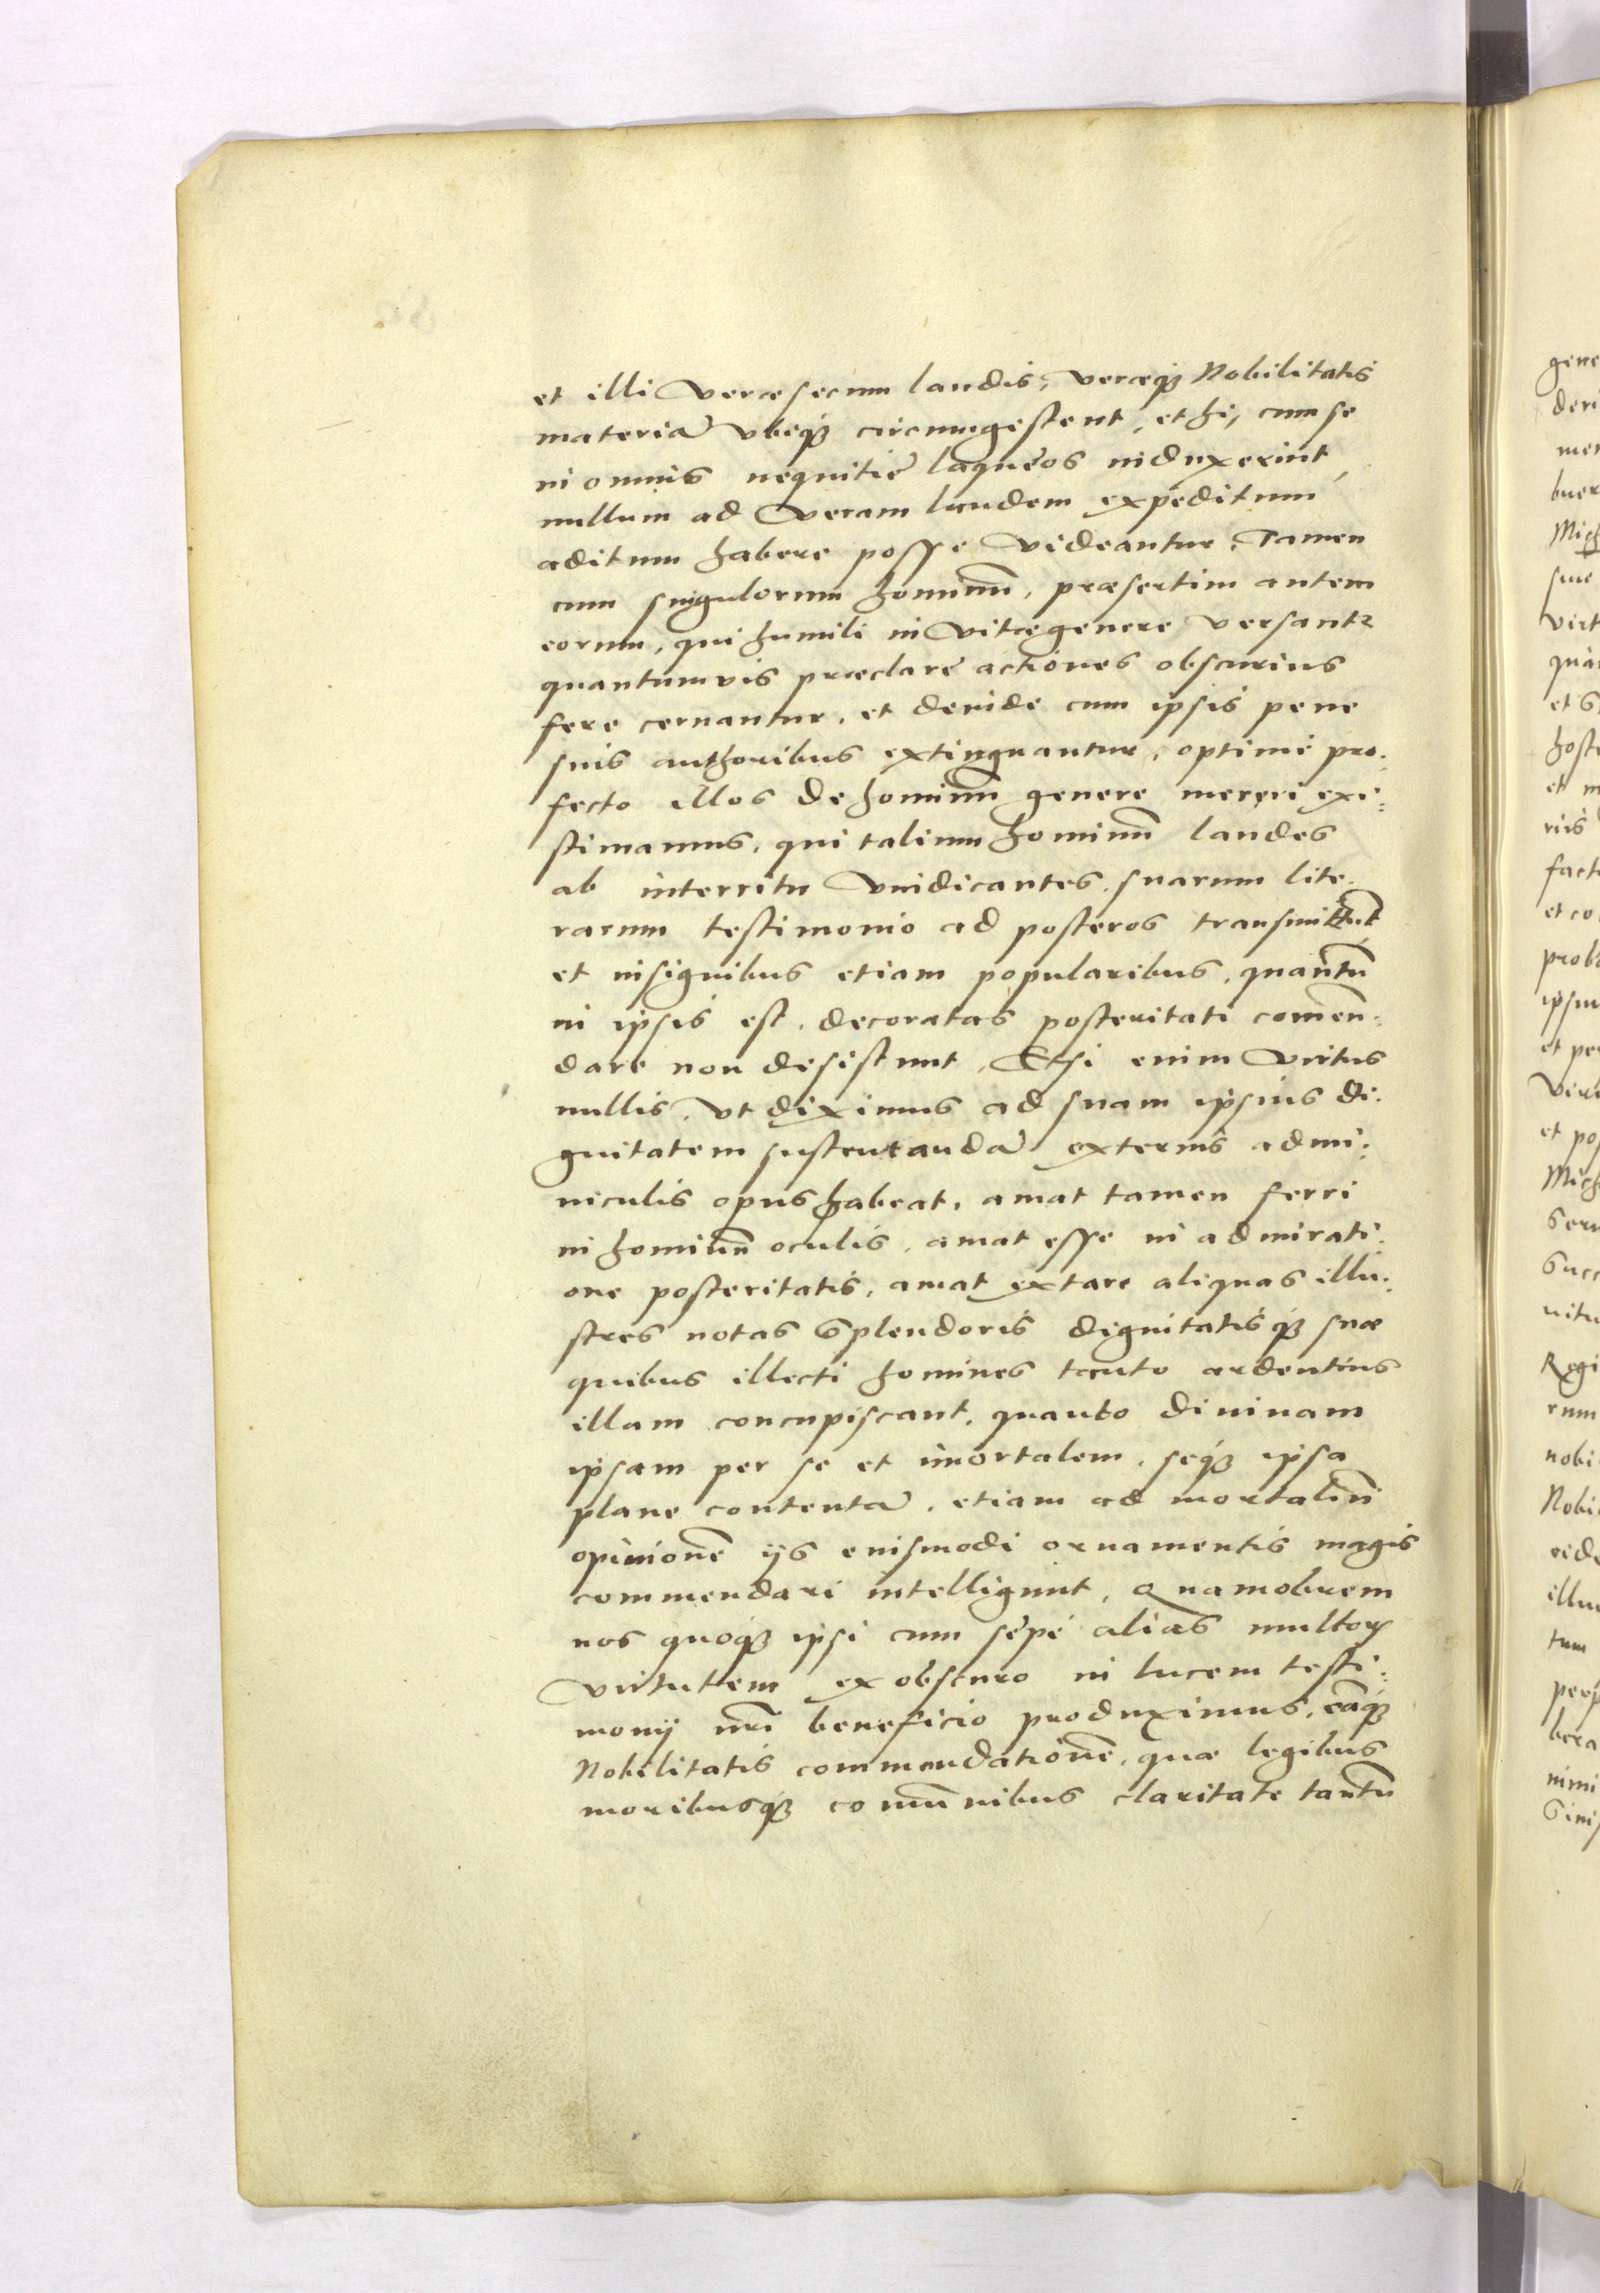 et illi veræ secum laudis, veræq; Nobilitatis
materiã vbiq; circumgestent, et hi, cum se
in omnis nequitie laqueos induxerint,
nullum ad veram laudem expeditum
aditum habere posse videantur, Tamen
cum singulorum hominũ, præsertim autem
eorum, qui humili in vitæ genere versantr
quantumuis præclare actiones obscurius
fere cernantur, et deinde cum ipsis pene
suis authoribus extinguantur, optime pro.
fecto illos de hominũ genere mereri exi:
stimamus, qui talium hominũ laudes
ab interritu vindicantes, suarum lite.
rarum testimonio ad posteros transmittũt
et insignibus etiam popularibus, quantũ
in ipsis est, decoratas posteritati comẽn:
dare non desistunt, Etsi enim virtus
nullis, vt diximus ad suam ipsius di.
gnitatem sustentandã externis admi:
niculis opus habeat, amat tamen ferri
in hominũ oculis, amat esse in admirati:
one posteritatis, amat extare aliquas illu:
stres notas splendoris dignitatisq; suæ
quibus illecti homines tanto ardentius
illam concupiscant, quanto diuinam
ipsam per se et im̃ortalem, seq; ipsa
plane contentã, etiam ad mortaliũ
opinionẽ ijs eiusmodi ornamentis magis
commendari intelligunt, Quamobrem
nos quoq; ipsi cum sepe alias multoꝝ
virtutem ex obscuro in lucem testi:
monij nr̃i beneficio produximus, eãq;
Nobilitatis commendationẽ, quæ legibus
moribusq; com̃unibus claritate tantũ